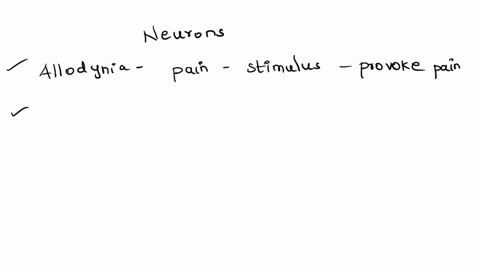 Neurons
✓ Allodynia - pain - stimulus - provoke pain
✓